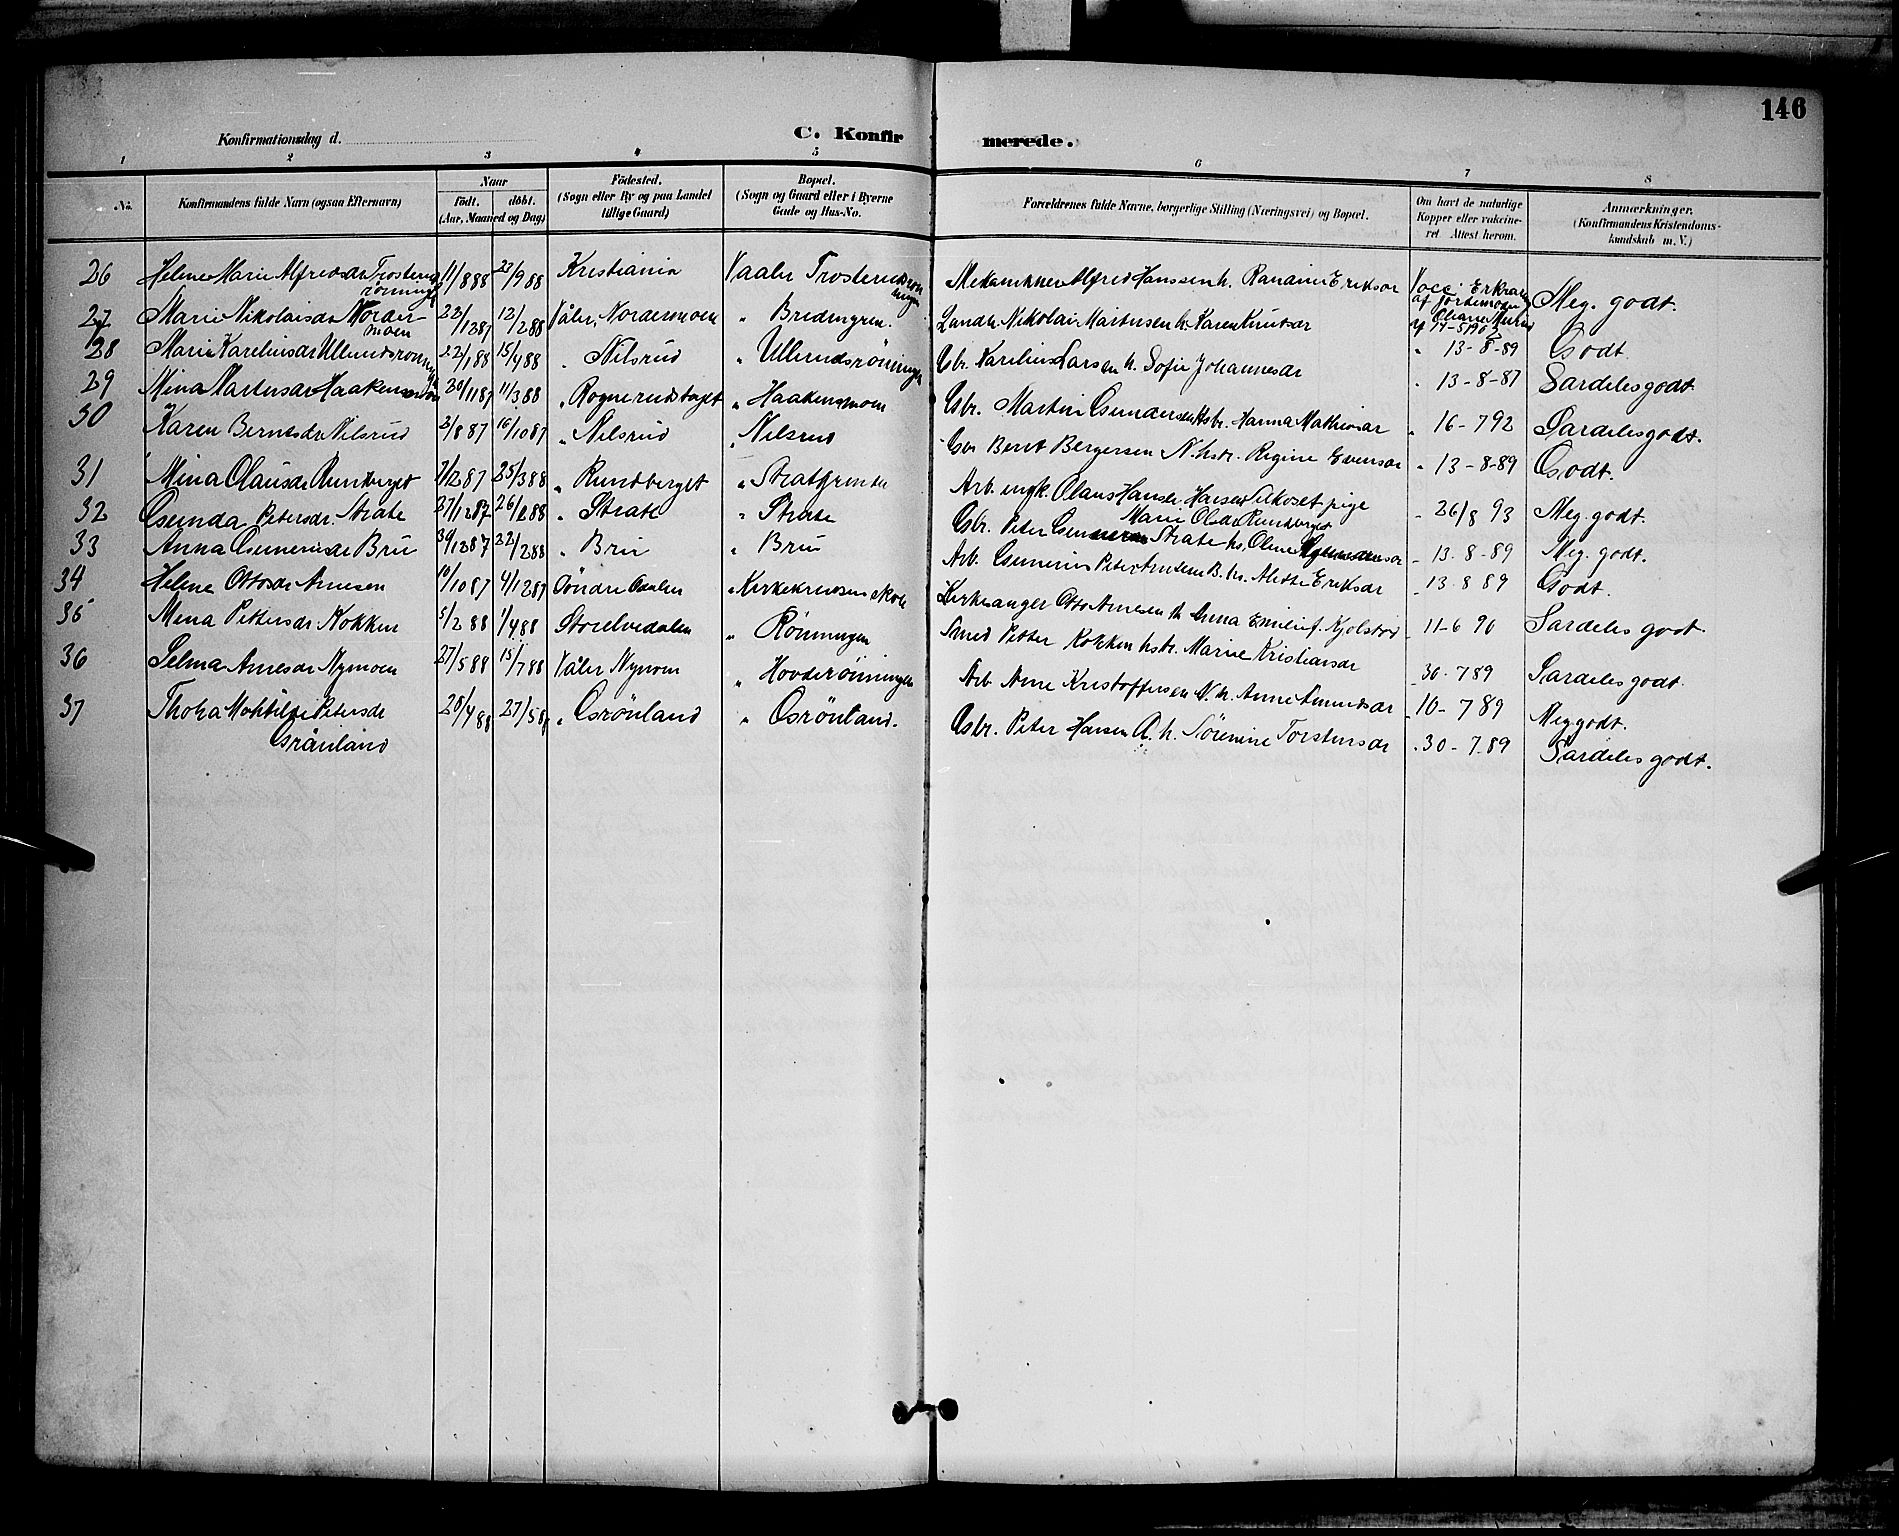 146
Konfirmationsdag d.
C. Konfirmerede.
1 2 3 4 5 6 7 8
No. Konfirmandens fulde Navn (ogsaa Efternavn) Naar födt. döbt. (Aar, Maaned og Dag) Födested. (Sogn eller By og paa Landet tillige Gaard) Bopæl. (Sogn og Gaard eller i Byerne Gade og Hus-No. Forældrenes fulde Navne, borgerlige Stilling (Næringsvei) og Bopæl. Om havt de naturlige Kopper eller vakcineret. Attest herom. Anmærkninger. (Konfirmandens Kristendomskundskab m. V.)
26 Helene Marie Alfredsdr Trosterudrönningen 11/888 23/988 Kristiania Vaaler Trosterudrönningen Mekanikker Alfred Hanssen h. Randine Eriksdr Vacc. Erklæring af Jordemoder 14-5 1903 Meg. godt.
27 Marie Nikolaisdr Nordermoen 22/1287 12/288 Våler, Nordermoen " Bredengren. Nikolai Martinsen h. Karen Knutsdr Godt
28 Marie Kareliusdr Ullerudsrönningen 22/188 15/488 " Nilsrud " Ullerudsröningen Gbr. Karelius Larsen h. Sofie Johannesdr " 13-8-89 Godt
29 Mina Martinsdr Haakensmoen 20/1187 11/388 " Rognerudtorget " Haakensmoen Gbr. Martin Gundersen Hstr. Hanna Mathisdr " 13-8-87 Særdeles godt
30 Karen Berntsdr Nilsrud 2/887 16/1087 " Nilsrud " Nilsrud Gbr Bernt Bergersen N. hstr. Regine Evensdr " 16-792 Særdeles godt.
31 Mina Olausdr Rundberget 7/1287 25/388 " Rundberget " Stratgrenden Arb. ungk. Olaus Hansen pige Marie Olsdr Rundberget " 13-8-89 Godt.
32 Gunda Petersdr. Strate 27/1287 26/288 " Strate " Strate Gbr. Peder Strate hs. Oline " 26/8 93 Meg. godt.
33 Anna Gunerusdr Bru 30/1287 22/288 " Bru " Bru Arb. Gunerius Peter Amdsen B. hs. Alette Eriksdr " 13-8-89 Meg. godt.
34 Helene Ottosdr Arnesen 10/1087 4/1287 Söndre Osalen " Kirkekredsens skole Kirkesanger Otto Arnesen h. Anna Emilie f. Kjolstad " 13 8 89 Godt.
35 Mina Pettersdr Kokken 5/288 1/488 Storelvedalen " Rönningen Smed Petter Kokken hstr. Marie Kristiansdr " 11-6 90 Særdeles godt.
36 Selma Arnesdr Nymoen 27/588 15/788 Våler Nymoen " Hovderönningen Arb. Arne Kristoffersen N. h. Anne Amundsdr " 30-789 Særdeles godt.
37 Thora Mathilde Petersdr Grönland 28/488 27/588 " Grönland " Grönland. Gbr. Peter Hansen h. Sörenine Torstensdr " 10-789 Meg godt.
" 30-7-89 Særdeles godt.